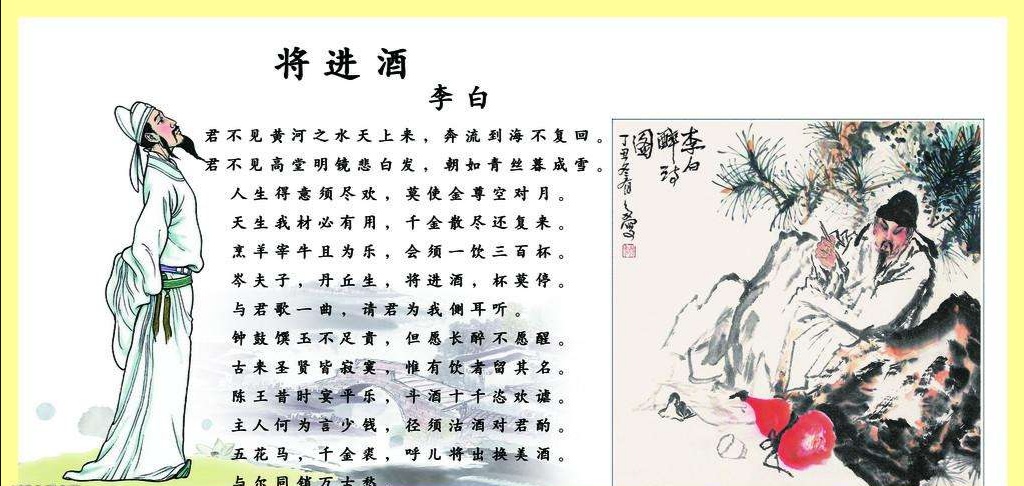 将进酒
李白
君不见黄河之水天上来，奔流到海不复回。
君不见高堂明镜悲白发，朝如青丝暮成雪。
人生得意须尽欢，莫使金尊空对月。
天生我材必有用，千金散尽还复来。
烹羊宰牛且为乐，会须一饮三百杯。
岑夫子，丹丘生，将进酒，杯莫停。
与君歌一曲，请君为我侧耳听。
钟鼓馔玉不足贵，但愿长醉不愿醒。
古来圣贤皆寂寞，惟有饮者留其名。
陈王昔时宴平乐，斗酒十千恣欢谑。
主人何为言少钱，径须沽酒对君酌。
五花马，千金裘，呼儿将出换美酒。
与尔同销万古愁
李白
醉诗
图